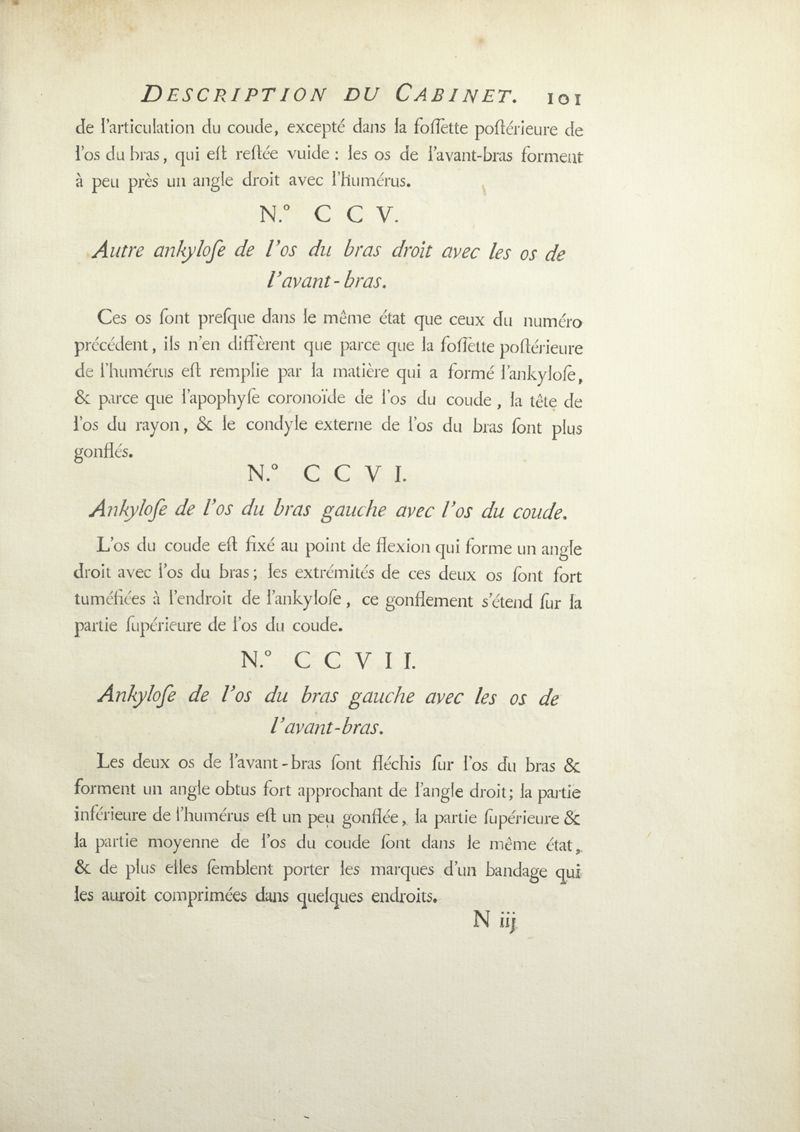 DESCRIPTION DU CABINET. 101
de l'articulation du coude, excepté dans la foſſette poſtérieure de
l'os du bras, qui eſt reſtée vuide : les os de l'avant-bras forment
à peu près un angle droit avec l'humérus.
N.° C C V.
Autre ankyloſe de l'os du bras droit avec les os de
l'avant-bras.
Ces os ſont preſque dans le même état que ceux du numéro
précédent, ils n'en diffèrent que parce que la foſſette poſtérieure
de l'humérus eſt remplie par la matière qui a formé l'ankyloſe,
& parce que l'apophyſe coronoïde de l'os du coude, la tête de
l'os du rayon, & le condyle externe de l'os du bras ſont plus
gonflés.
N.° C C V I.
Ankyloſe de l'os du bras gauche avec l'os du coude.
L'os du coude eſt fixé au point de flexion qui forme un angle
droit avec l'os du bras; les extrémités de ces deux os ſont fort
tuméfiées à l'endroit de l'ankyloſe, ce gonflement s'étend ſur la
partie ſupérieure de l'os du coude.
N.° C C V I I.
Ankyloſe de l'os du bras gauche avec les os de
l'avant-bras.
Les deux os de l'avant-bras ſont fléchis ſur l'os du bras &
forment un angle obtus fort approchant de l'angle droit; la partie
inférieure de l'humérus eſt un peu gonflée, la partie ſupérieure &
la partie moyenne de l'os du coude ſont dans le même état,
& de plus elles ſemblent porter les marques d'un bandage qui
les auroit comprimées dans quelques endroits.
N iij